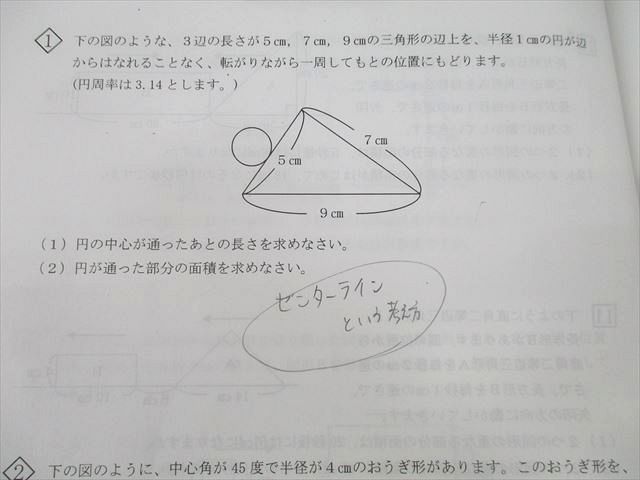 1 下の図のような、3辺の長さが5cm, 7cm, 9cmの三角形の辺上を、半径1cmの円が辺
からはなれることなく、転がりながら一周してもとの位置にもどります。
(円周率は3.14とします。)
7cm
5cm
9cm
(1) 円の中心が通ったあとの長さを求めなさい。
(2) 円が通った部分の面積を求めなさい。
センターライン
という考え方
2 下の図のように、中心角が45度で半径が4cmのおうぎ形があります。このおうぎ形を、